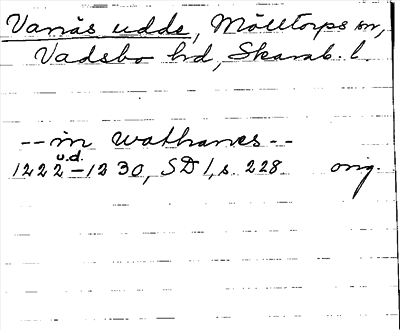 Vanäs udde, Mölltorps sn,
Vadsbo hd, Skarab. l.
-- in wathanes --
u.d.
1222-1230, SD 1, s. 228 orig.